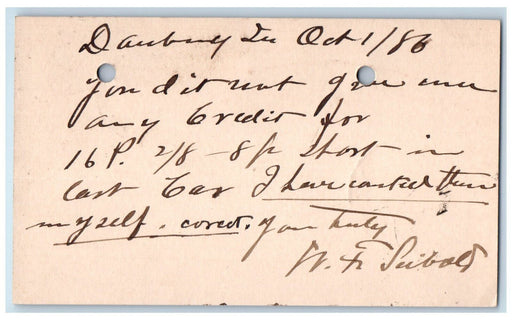 Danbury Ia Oct 1/86
You did not give me
any Credit for
16 P. 2/8 - 8 ft short in
last Car I have counted them
myself. corect. Your truly
W. F. Seibold